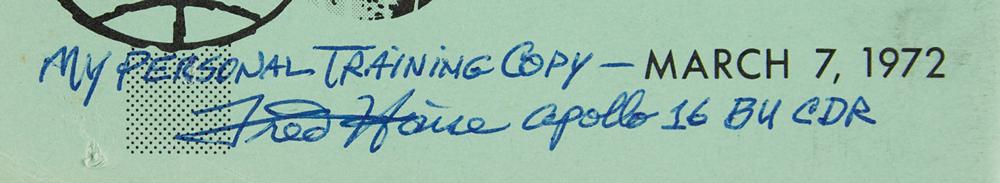 MY PERSONAL TRAINING COPY — MARCH 7, 1972
Fred Haise Apollo 16 BU CDR